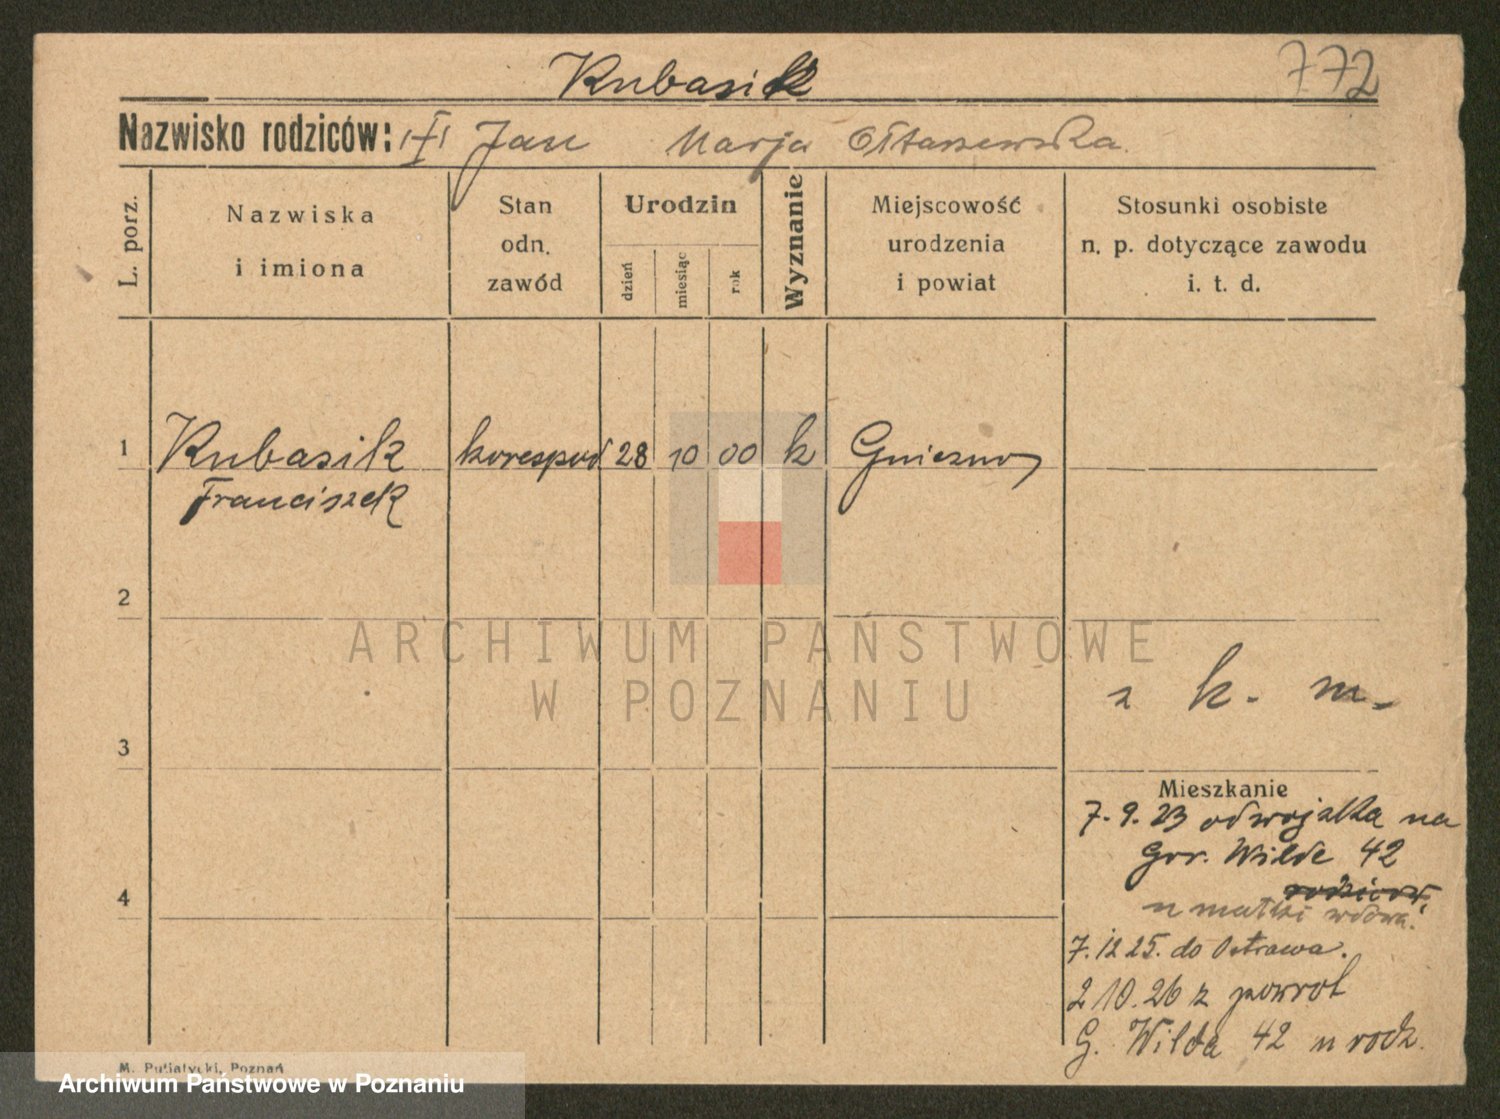 Kubasik
772
Nazwisko rodziców: Jan Marja Ołtarzewska.
L. porz.
Nazwiska
i imiona
Stan
odn.
zawód
Urodzin
dzień
miesiąc
rok
Wyznanie
Miejscowość
urodzenia
i powiat
Stosunki osobiste
n. p. dotyczące zawodu
i. t. d.
1 Kubasik korespod 28 10 00 k Gniezno
Franciszek
2
ARCHIWUM PAŃSTWOWE
W POZNANIU
z k. m.
3
Mieszkanie
7.9.23 od wojska na
Gor. Wilde 42
4
u matki wdowa.
7.12 25. do Ostrowa.
2 10.26 z powrot
G. Wilda 42 u rodz.
M. Putiatycki, Poznań
Archiwum Państwowe w Poznaniu